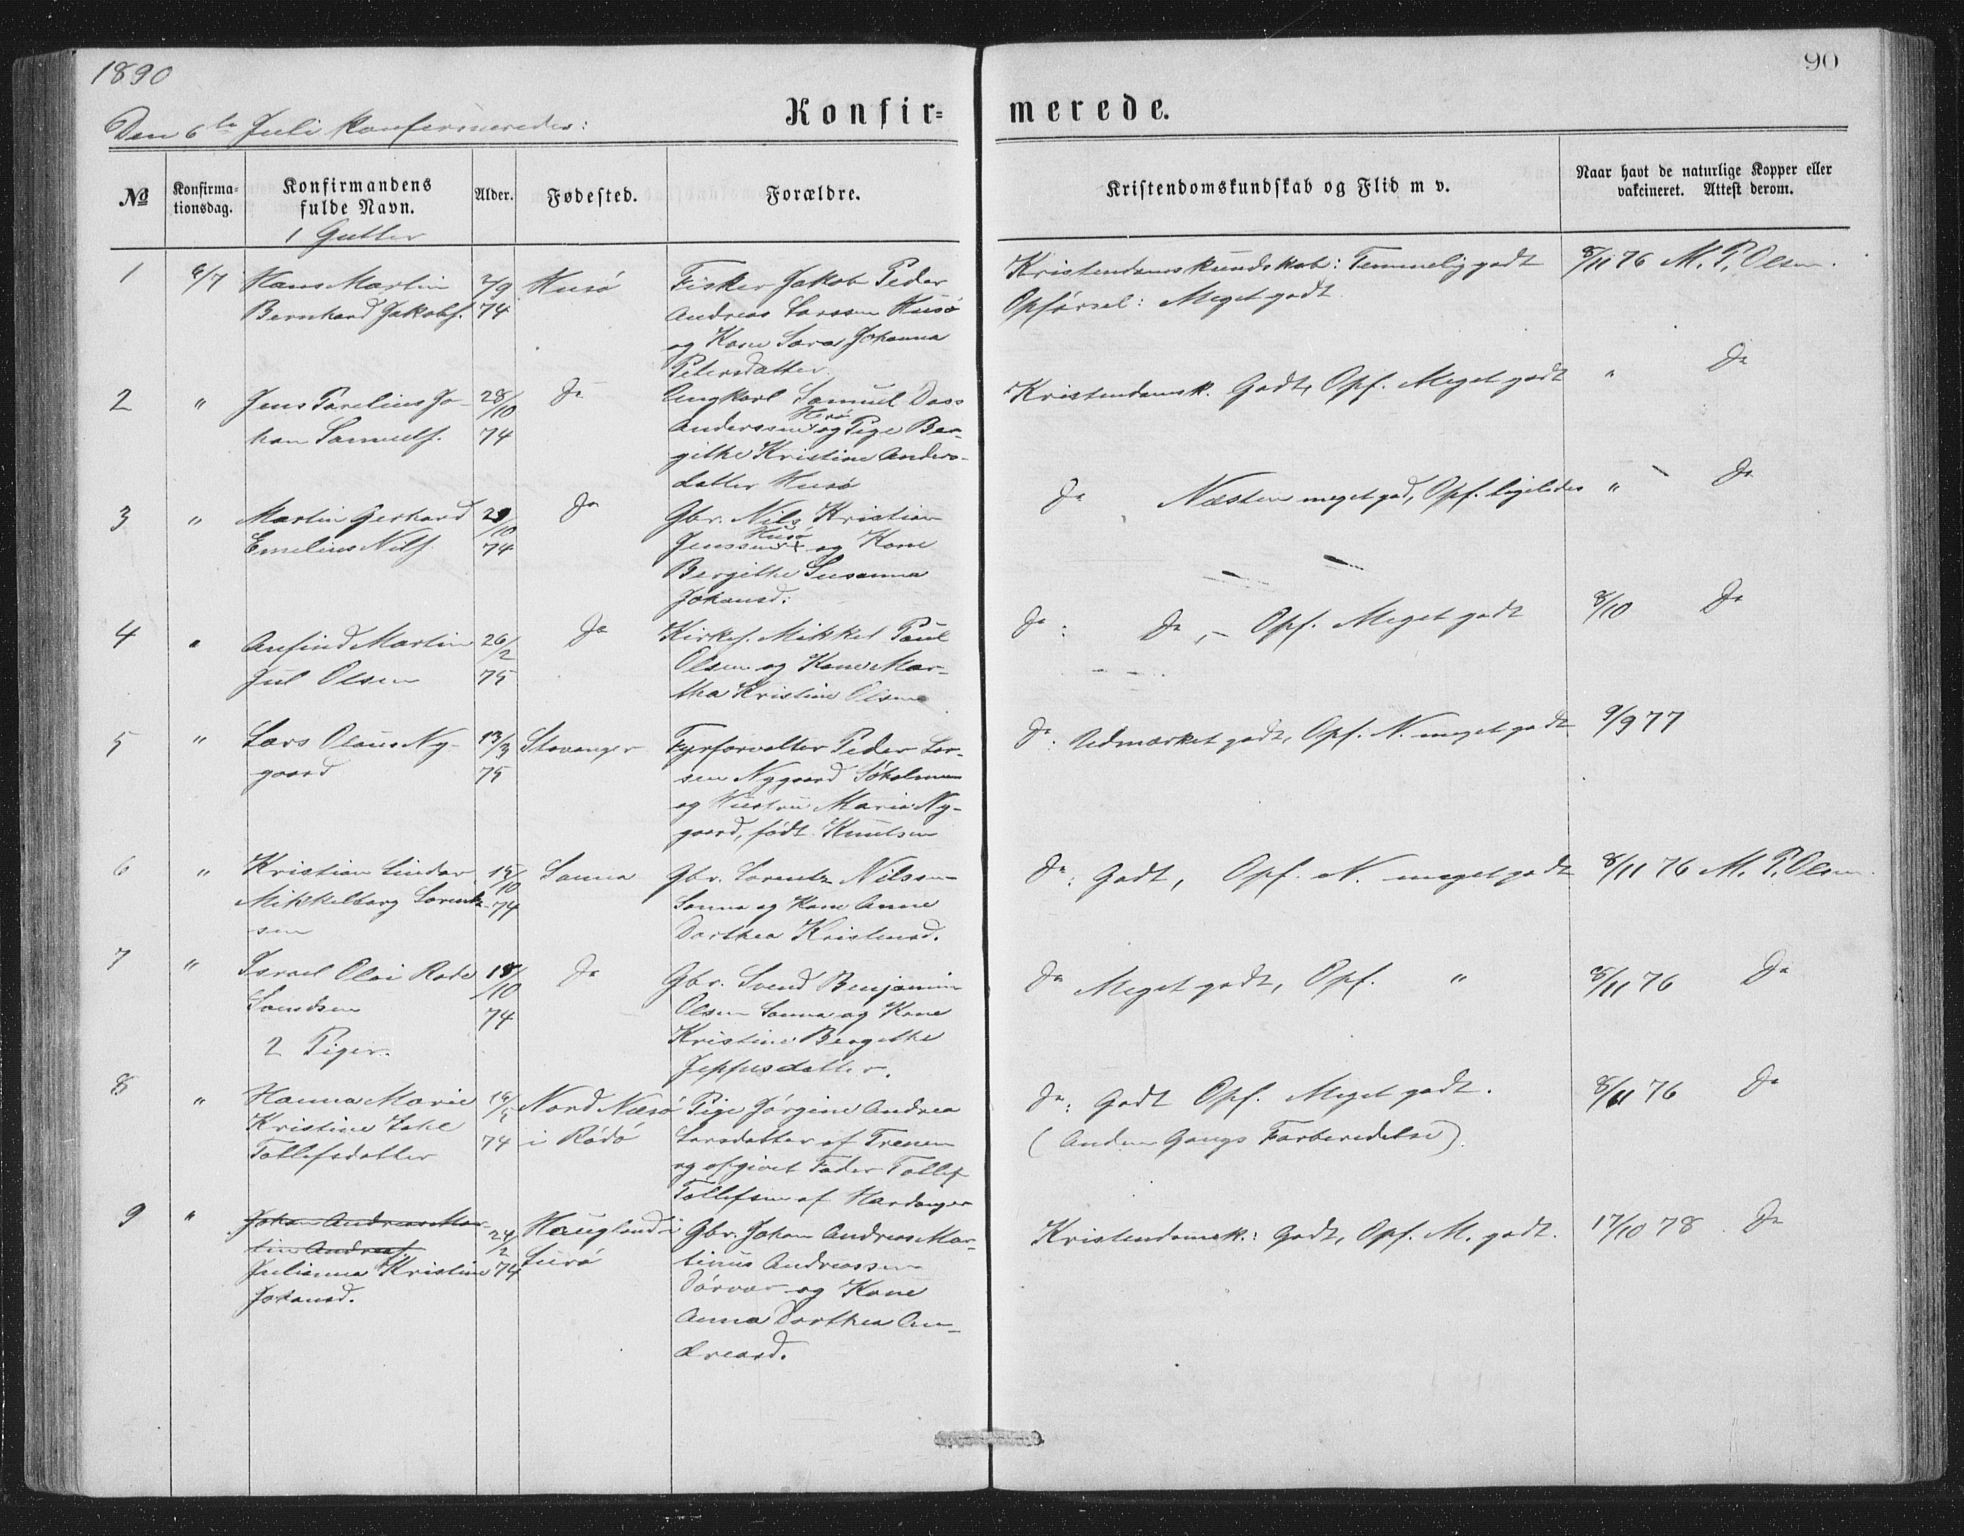 1890
90
Den 6te Juli konfirmeredes:
Konfir=
merede.
№
Konfirma-
tionsdag.
Konfirmandens
fulde Navn.
Alder.
Fødested.
Forældre.
Kristendomskundskab og Flid m v.
Naar havt de naturlige Kopper eller
vakcineret. Attest derom.
1 Gutter
1 6/7 Hans Martin 7/9 Husö Fisker Jakob Peder
Bernhard Jakobs. 74 Andreas Larssen Husö
og Kone Sara Johanna
Petersdatter.
Kristendomskundskab: Temmelig godt 8/11 76 M. P. Olsen.
Opförsel: Meget godt.
2 " Jens Parelius Jo- 28/10 Do Ungkarl Samuel Dass
han Samuels. 74 Anderssen Herö og Pige Ber-
githe Kristine Anders-
datter Husö
Kristendomsk. Godt, Opf. Meget godt " Do
3 " Martin Gerhard 29/10 Do Gbr. Nils Kristian
Emelius Nils. 74 Jenssen Husö og Kone
Bergithe Susanna
Johansd:
Do Næsten meget god, Opf. ligeledes " Do
4 " Anfind Martin 26/2 Do Kirkes. Mikkel Paul
Jul Olsen 75 Olsen og Kone Mar-
tha Kristine Olsen
Do: Do, - Opf. Meget godt 8/10 Do
5 " Lars Olaus Ny- 13/3 Stavanger Fyrforvalter Peder Lar-
gaard 75 sen Nygaard Söholmen
og Hustru Maria Ny-
gaard, født Knutsen
Do: Udmærket godt, Opf. N. meget godt 9/9 77
6 " Kristian Lindor 15/10 Sanna Gbr. Lorentz Nilssen
Mikkelborg Lorentz- 74 Sanna og Kone Anne
sen Dorthea Kristensd.
Do: Godt, Opf. N. meget godt 8/11 76 M. P. Olsen.
7 " Israel Olai Rode 18/10 Do Gbr. Svend Benjamin
Svendsen 74 Olsen Sanna og Kone
Kristine Bergithe
Jeppesdatter.
Do Meget godt, Opf. " 8/11 76 Do
2 Piger.
8 " Hanna Marie Nord Næsö Pige Jörgine Andrea
Kristine Zahl 74 i Rödö Larsdatter af Trenen
Tollefsdatter og opgivet Fader Tollef
Tollefsen af Hardanger
Do: Godt Opf. Meget godt. 8/11 76 Do
(Anden Gangs Forberedelse).
9 " Johan Andreas Mar- 24/2 Hauglund i Gbr. Johan Andreas Mar-
tin Andreas. Lurö tinus Andreassen
Julianna Kristine 74 Dörvær og Kone
Johansd. Anna Dorthea An-
dreasd.
Kristendomsk.: Godt, Opf. M. godt. 17/10 78. Do